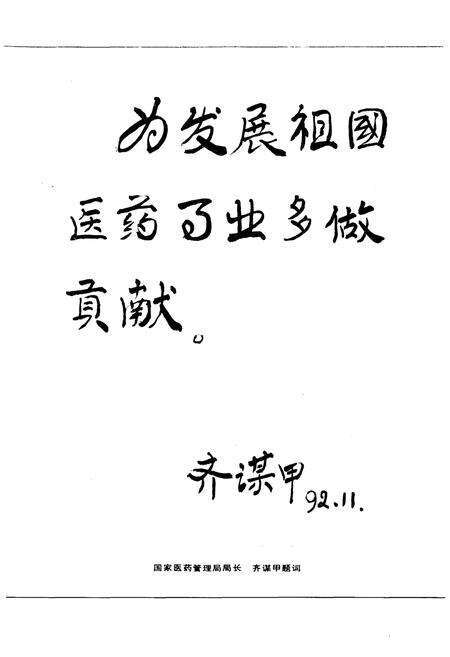 为发展祖國
医药事业多做
贡献。
齐谋甲 92.11.
国家医药管理局局长 齐谋甲题词